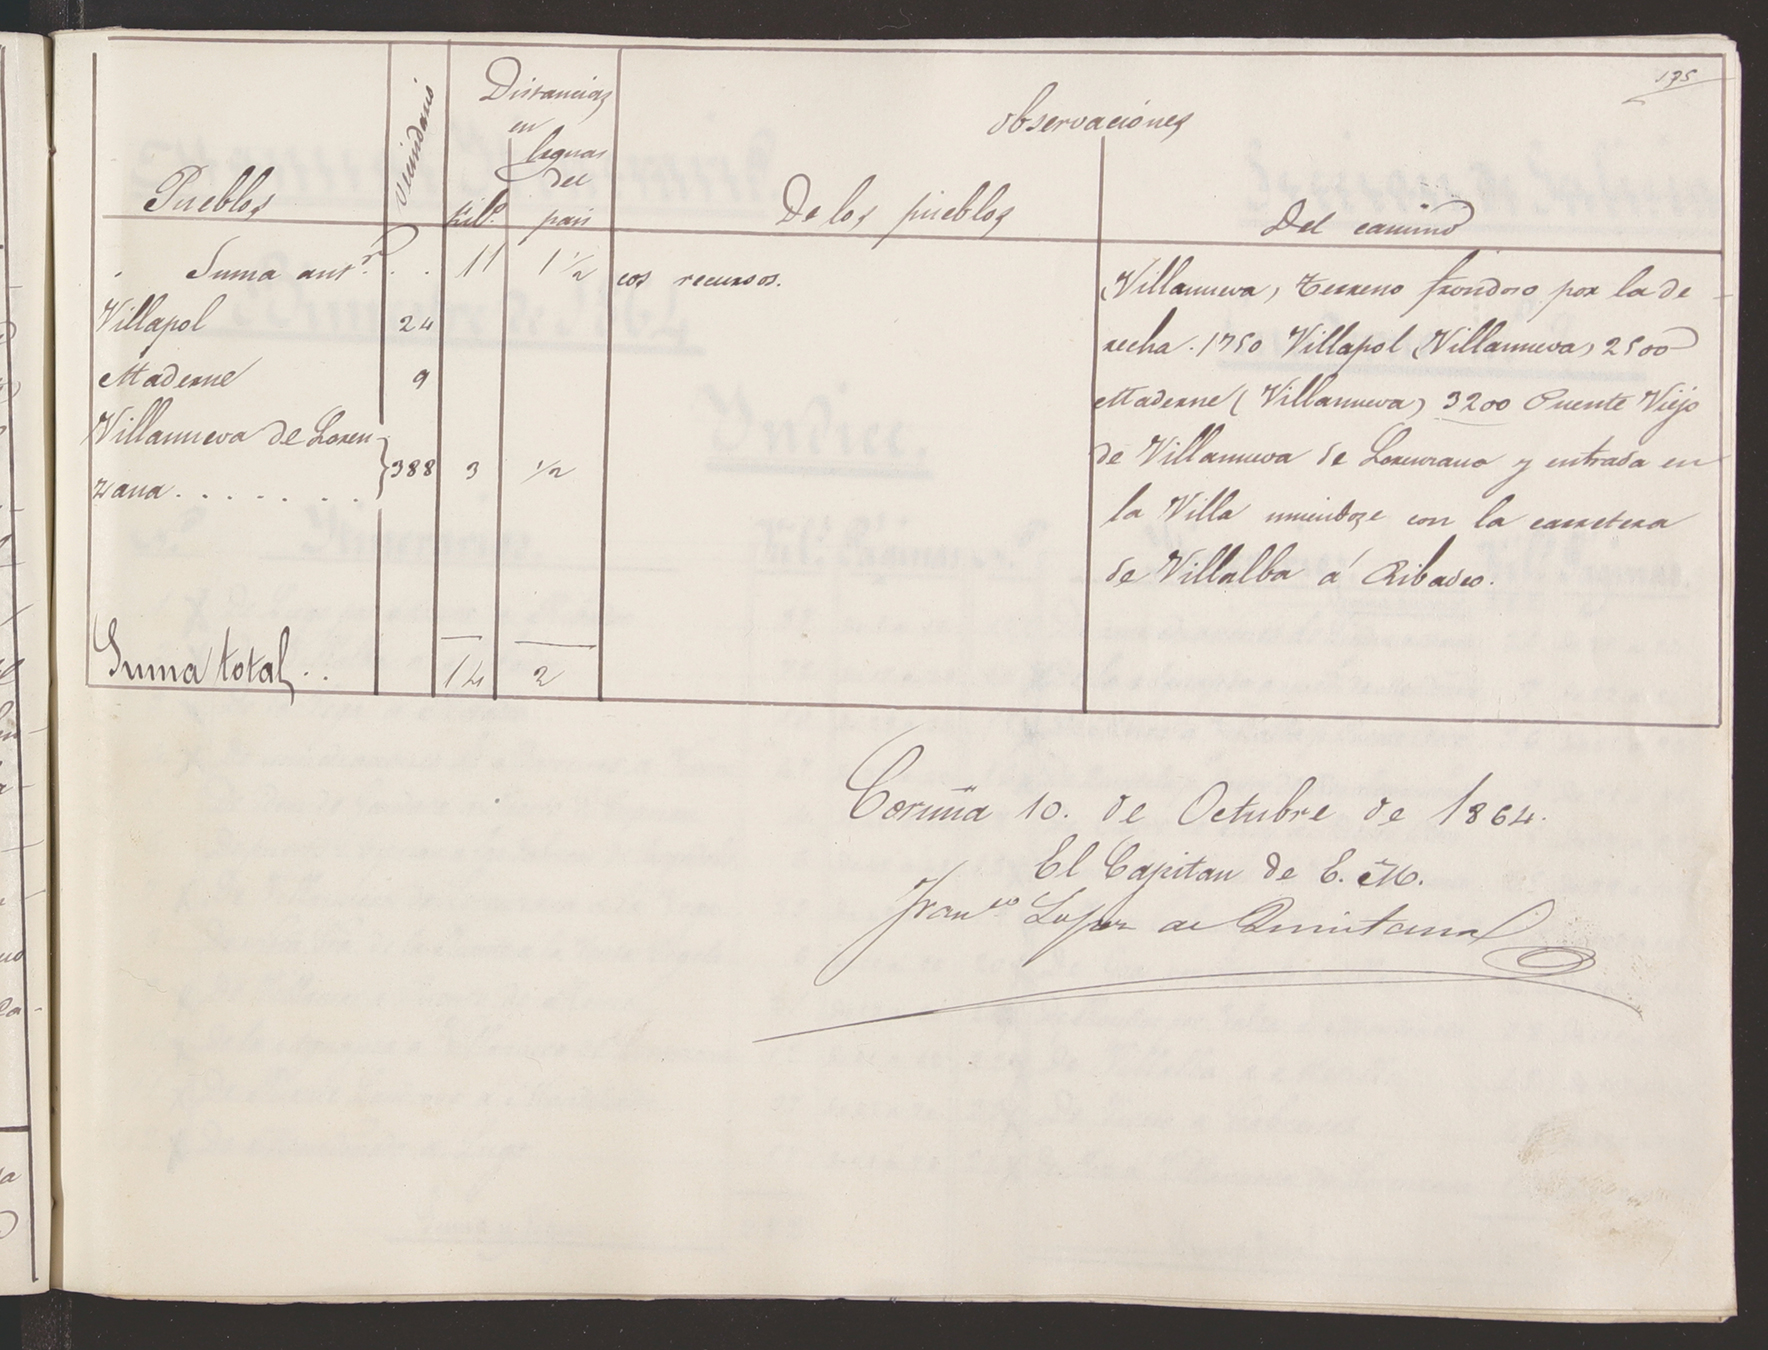 175
Pueblos
Vecindario
Distancias
en
kil.s
leguas
del
pais
Observaciones
De los pueblos
Del camino
Suma ant.r . . 11 1 1/2
cos recursos.
Villapol 24
Maderne 9
Villanueva de Loren
zana . . . . . . . 388 3 1/2
Suma total . . 14 2
(Villanueva) Terreno frondoso por la de
recha. 1750 Villapol (Villanueva) 2500
Maderne (Villanueva) 3200 Puente Viejo
de Villanueva de Lorenzana y entrada en
la Villa uniendose con la carretera
de Villalba á Ribadeo.
Coruña 10. de Octubre de 1864.
El Capitan de E. M.
Fran.co Lopez de Quintana